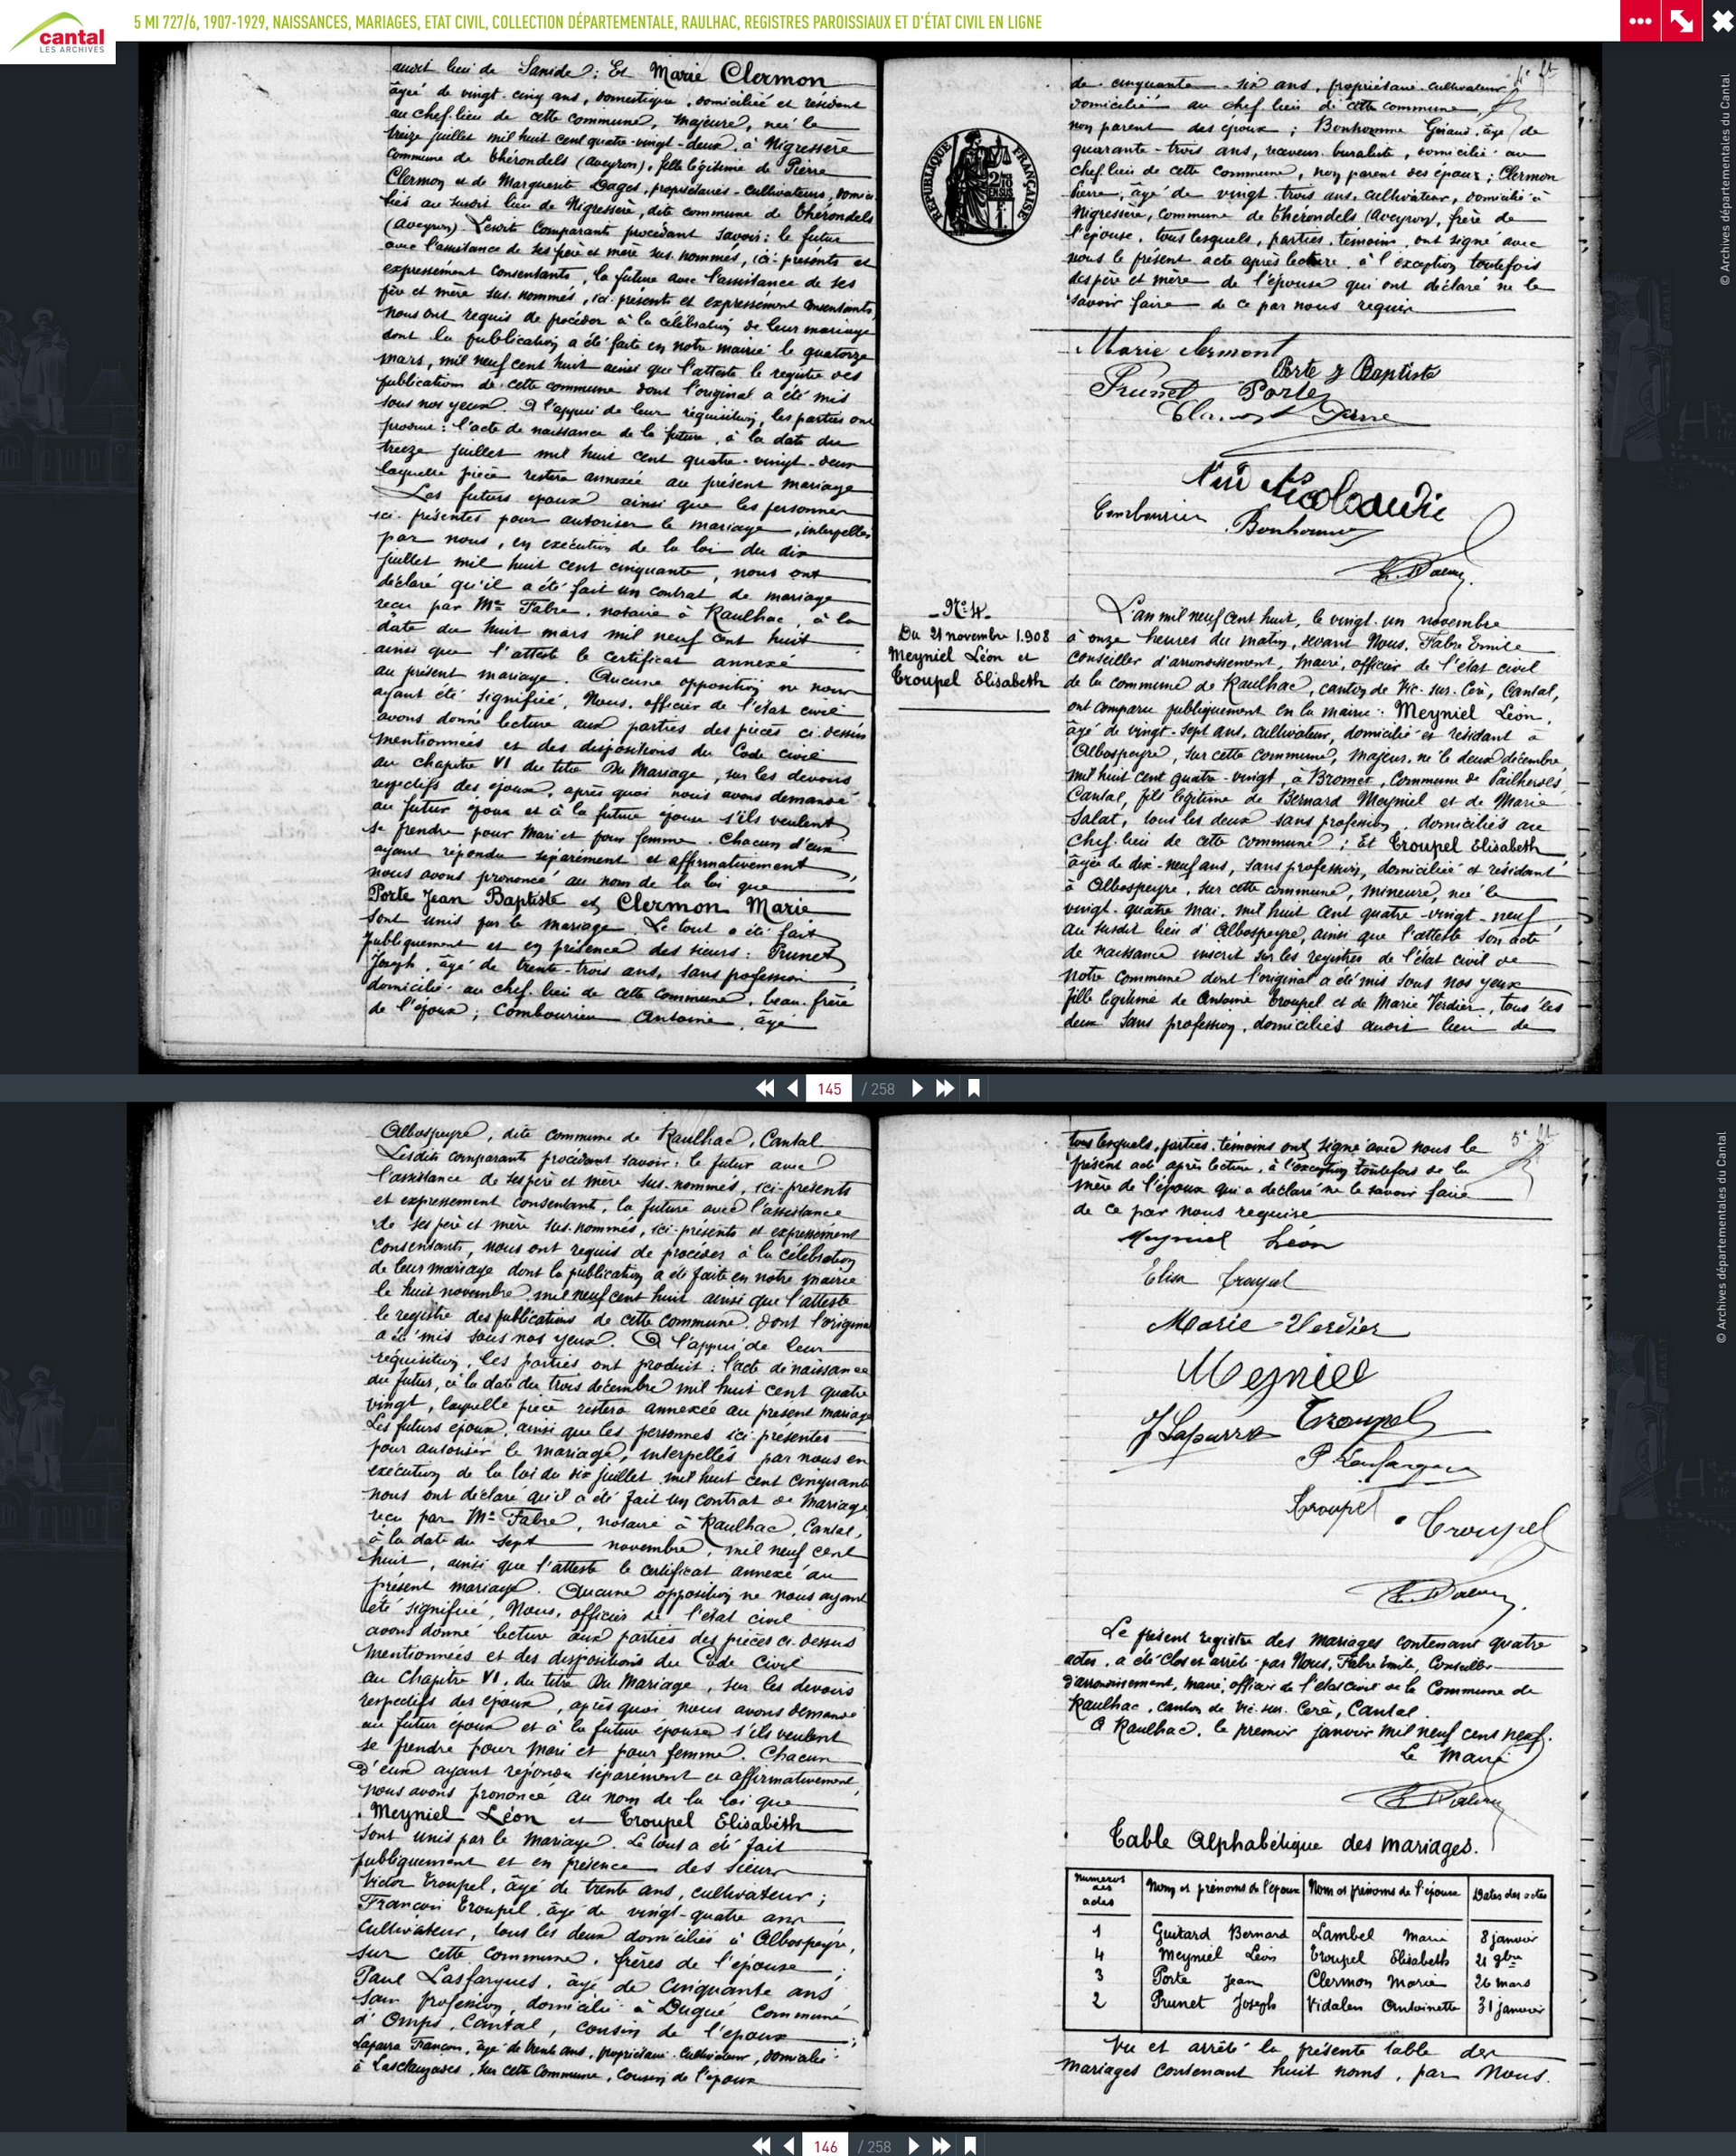 cantal
LES ARCHIVES
5 MI 727/6, 1907-1929, NAISSANCES, MARIAGES, ETAT CIVIL, COLLECTION DÉPARTEMENTALE, RAULHAC, REGISTRES PAROISSIAUX ET D'ÉTAT CIVIL EN LIGNE
© Archives départementales du Cantal
lieu de Sanide ; Et Marie Clermon
âgée de vingt-cinq ans, domestique, domiciliée et résidant
au chef-lieu de cette commune, majeure, née le
treize juillet mil huit cent quatre-vingt-deux, à Nigressère
commune de Thérondels (Aveyron), fille légitime de Pierre
Clermon et de Marguerite Dages, propriétaires-cultivateurs, domici
liés au susdit lieu de Nigressère, dite commune de Thérondels
(Aveyron) Lesdits comparants procédant savoir : le futur
avec l'assistance de ses père et mère sus-nommés, ici-présents et
expressément consentants, la future avec l'assistance de ses
père et mère sus-nommés, ici-présents et expressément consentants,
nous ont requis de procéder à la célébration de leur mariage
dont la publication a été faite en notre mairie le quatorze
mars, mil neuf cent huit ainsi que l'atteste le registre des
publications de cette commune dont l'original a été mis
sous nos yeux. A l'appui de leur réquisition, les parties ont
produit : l'acte de naissance de la future, à la date du
treize juillet mil huit cent quatre-vingt-deux
laquelle pièce restera annexée au présent mariage
Les futurs époux ainsi que les personnes
ici-présentes pour autoriser le mariage, interpellés
par nous, en exécution de la loi du dix
juillet mil huit cent cinquante, nous ont
déclaré qu'il a été fait un contrat de mariage
reçu par Me Fabre, notaire à Raulhac, à la
date du huit mars mil neuf cent huit
ainsi que l'atteste le certificat annexé
au présent mariage. Aucune opposition ne nous
ayant été signifiée, Nous, officier de l'état civil
avons donné lecture aux parties des pièces ci-dessus
mentionnées et des dispositions du Code civil
au chapitre VI du titre Du Mariage, sur les devoirs
respectifs des époux, après quoi nous avons demandé
au futur époux et à la future épouse s'ils veulent
se prendre pour mari et pour femme. Chacun d'eux
ayant répondu séparément et affirmativement
nous avons prononcé au nom de la loi que
Porte Jean Baptiste et Clermon Marie
sont unis par le mariage. Le tout a été fait
publiquement et en présence des sieurs : Prunet
Joseph, âgé de trente-trois ans, sans profession
domicilié au chef-lieu de cette commune, beau-frère
de l'époux ; Combourieu Antoine, âgé
4e ft
de cinquante-six ans, propriétaire-cultivateur
domicilié au chef-lieu de cette commune,
non parent des époux ; Bonhomme Géraud, âgé de
quarante-trois ans, receveur buraliste, domicilié au
chef-lieu de cette commune, non parent des époux ; Clermon
Pierre, âgé de vingt-trois ans, cultivateur, domicilié à
Nigressère, commune de Thérondels (Aveyron), frère de
l'épouse, tous lesquels, parties, témoins, ont signé avec
nous le présent acte après lecture, à l'exception toutefois
des père et mère de l'épouse qui ont déclaré ne le
savoir faire de ce par nous requis
RÉPUBLIQUE FRANÇAISE
Marie Clermont
Porte J Baptiste
Prunet Porte
Clermont Pierre
Combourieu Bonhomme
No 4.
Du 21 novembre 1.908
Meyniel Léon et
Troupel Elisabeth
L'an mil neuf cent huit, le vingt-un novembre
à onze heures du matin, devant Nous, Fabre Emile
conseiller d'arrondissement, maire, officier de l'état civil
de la commune de Raulhac, canton de Vic-sur-Cère, Cantal,
ont comparu publiquement en la mairie : Meyniel Léon,
âgé de vingt-sept ans, cultivateur, domicilié et résidant à
Albospeyre, sur cette commune, majeur, né le deux décembre,
mil huit cent quatre-vingt, à Bromet, commune de Pailherols
Cantal, fils légitime de Bernard Meyniel et de Marie
Salat, tous les deux sans profession, domiciliés au
chef-lieu de cette commune ; Et Troupel Elisabeth
âgée de dix-neuf ans, sans profession, domiciliée et résidant
à Albospeyre, sur cette commune, mineure, née le
vingt-quatre mai, mil huit cent quatre-vingt-neuf
au susdit lieu d'Albospeyre, ainsi que l'atteste son acte
de naissance inscrit sur les registres de l'état civil de
notre commune dont l'original a été mis sous nos yeux
fille légitime de Antoine Troupel et de Marie Verdier, tous les
deux sans profession, domiciliés audit lieu de
145 / 258
Albospeyre, dite commune de Raulhac, Cantal
Lesdits comparants procédant savoir : le futur avec
l'assistance de ses père et mère sus-nommés, ici-présents
et expressément consentants, la future avec l'assistance
de ses père et mère sus-nommés, ici-présents et expressément
consentants, nous ont requis de procéder à la célébration
de leur mariage dont la publication a été faite en notre mairie
le huit novembre mil neuf cent huit ainsi que l'atteste
le registre des publications de cette commune dont l'original
a été mis sous nos yeux. A l'appui de leur
réquisition, les parties ont produit : l'acte de naissance
du futur, à la date du trois décembre mil huit cent quatre
vingt, laquelle pièce restera annexée au présent mariage
Les futurs époux, ainsi que les personnes ici-présentes
pour autoriser le mariage, interpellés par nous en
exécution de la loi du dix juillet mil huit cent cinquante
nous ont déclaré qu'il a été fait un contrat de mariage
reçu par Me Fabre, notaire à Raulhac, Cantal,
à la date du sept novembre, mil neuf cent
huit, ainsi que l'atteste le certificat annexé au
présent mariage. Aucune opposition ne nous ayant
été signifiée, Nous, officier de l'état civil
avons donné lecture aux parties des pièces ci-dessus
mentionnées et des dispositions du Code Civil
au Chapitre VI, du titre Du Mariage, sur les devoirs
respectifs des époux, après quoi nous avons demandé
au futur époux et à la future épouse s'ils veulent
se prendre pour mari et pour femme. Chacun
d'eux ayant répondu séparément et affirmativement,
nous avons prononcé au nom de la loi que
Meyniel Léon et Troupel Elisabeth
sont unis par le mariage. Le tout a été fait
publiquement et en présence des sieurs
Victor Troupel, âgé de trente ans, cultivateur ;
François Troupel, âgé de vingt-quatre ans
cultivateur, tous les deux domiciliés à Albospeyre,
sur cette commune, frères de l'épouse ;
Paul Lasfargues, âgé de cinquante ans
sans profession, domicilié à Dugué commune
d'Omps, Cantal, cousin de l'époux ;
Laparra François, âgé de trente ans, propriétaire-cultivateur, domicilié
à Lasclauzades, sur cette Commune, cousin de l'époux
5e ft
tous lesquels, parties, témoins ont signé avec nous le
présent acte après lecture, à l'exception toutefois de la
mère de l'époux qui a déclaré ne le savoir faire
de ce par nous requise
Meyniel Léon
Elisa Troupel
Marie Verdier
Meyniel
J Laparra Troupel
P Lasfargues
Troupel Troupel
Le présent registre des mariages contenant quatre
actes, a été clos et arrêté par Nous, Fabre Emile, Conseiller
d'arrondissement, maire, officier de l'état civil de la Commune de
Raulhac, canton de Vic-sur-Cère, Cantal.
A Raulhac, le premier janvier mil neuf cent neuf.
Le Maire
Table Alphabétique des mariages.
Numéros des actes | Noms et prénoms de l'époux | Noms et prénoms de l'épouse | Dates des actes
1 | Guitard Bernard | Lambel Marie | 8 janvier
4 | Meyniel Léon | Troupel Elisabeth | 21 9bre
3 | Porte Jean | Clermon Marie | 26 mars
2 | Prunet Joseph | Vidalen Antoinette | 31 janvier
Vu et arrêté la présente table des
mariages contenant huit noms, par Nous.
© Archives départementales du Cantal
146 / 258